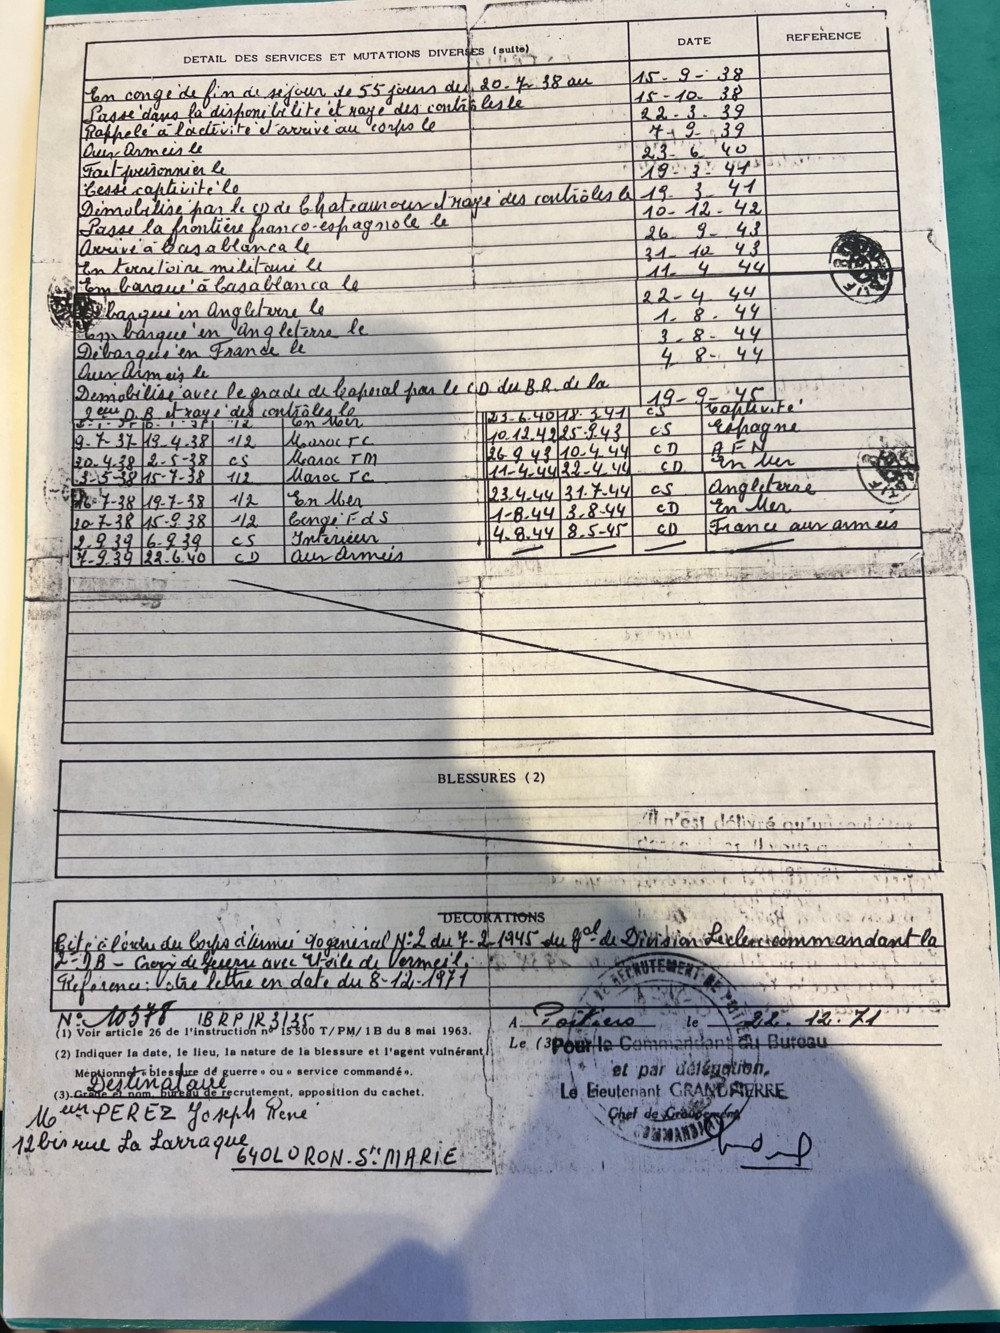 DETAIL DES SERVICES ET MUTATIONS DIVERSES (suite) DATE REFERENCE
En congé de fin de séjour de 55 jours du 20-7-38 au 15-9-38
Passé dans la disponibilité et rayé des contrôles le 15-10-38
Rappelé à l'activité et arrivé au corps le 22-3-39
Aux Armées le 7-9-39
Fait prisonnier le 23-6-40
Cessé captivité le 19-3-41
Démobilisé par le CD de Chateauroux et rayé des contrôles le 19-3-41
Passe la frontière franco-espagnole le 10-12-42
Arrivé à Casablanca le 26-9-43
En territoire militaire le 31-10-43
Embarqué à Casablanca le 11-4-44
barqué en Angleterre le 22-4-44
Embarqué en Angleterre le 1-8-44
Débarqué en France le 3-8-44
Aux Armées le 4-8-44
Démobilisé avec le grade de Caporal par le CD du B.R. de la
2ème D.B et rayé des contrôles le 19-9-45
1/2 En Mer 23-6-40 18-3-41 CS Captivité
9-7-37 19-4-38 1/2 Maroc TC 10.12.42 25-9-43 CS Espagne
20-4-38 2-5-38 CS Maroc TM 26-9-43 10-4-44 CD AFN
3-5-38 15-7-38 1/2 Maroc TC 11-4-44 22-4-44 CD En Mer
16-7-38 19-7-38 1/2 En Mer 23-4-44 31.7-44 CS Angleterre
20-7-38 15-9-38 1/2 Congé FdS 1-8-44 3-8-44 CD En Mer
2-9-39 6-9-39 CS Intérieur 4-8-44 8-5-45 CD France aux armées
7-9-39 22-6-40 CD Aux Armées
BLESSURES (2)
Il n'est délivré qu'un
DECORATIONS
Cité à l'ordre du Corps d'Armée général N°2 du 7-2-1945 du Gal de Division Leclerc commandant la
2e DB - Croix de Guerre avec Etoile de Vermeil.
Référence: Votre lettre en date du 8-12-1971
N° 10378 IBRP/R3/35
A Poitiers le 22.12.71
(1) Voir article 26 de l'instruction n° 15500 T/PM/1B du 8 mai 1963.
Le (3) Pour le Commandant du Bureau
(2) Indiquer la date, le lieu, la nature de la blessure et l'agent vulnérant.
et par délégation,
Mention « blessure de guerre » ou « service commandé».
Destinataire
Le Lieutenant GRANDPIERRE
(3) Grade et nom, bureau de recrutement, apposition du cachet.
Chef de Groupement
Meur PEREZ Joseph René
12 bis rue La Larraque
64 OLORON-Ste MARIE